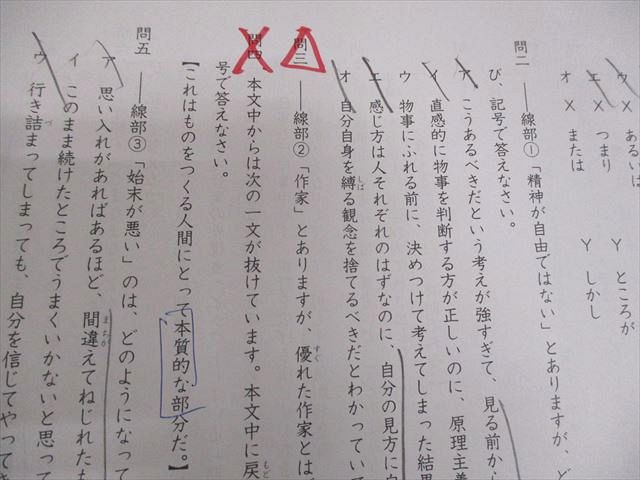 ウ X あるいは Y ところが
エ X つまり Y しかし
オ X または
問二 ――線部①「精神が自由ではない」とありますが、ど
び、記号で答えなさい。
ア こうあるべきだという考えが強すぎて、見る前か
イ 直感的に物事を判断する方が正しいのに、原理主義
ウ 物事にふれる前に、決めつけて考えてしまった結果
エ 感じ方は人それぞれのはずなのに、自分の見方に
オ 自分自身を縛る観念を捨てるべきだとわかってい
問三 ――線部②「作家」とありますが、優れた作家とは
問四 本文中からは次の一文が抜けています。本文中に戻
号で答えなさい。
【これはものをつくる人間にとって本質的な部分だ。】
問五 ――線部③「始末が悪い」のは、どのようになって
ア 思い入れがあればあるほど、間違えてねじれたも
イ このまま続けたところでうまくいかないと思って
ウ 行き詰まってしまっても、自分を信じてやって